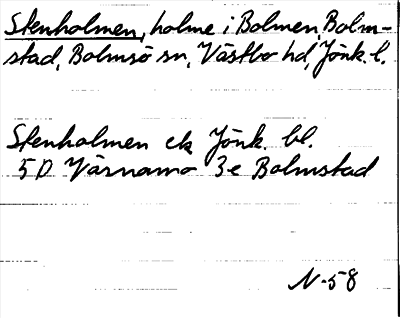 Stenholmen, holme i Bolmen, Bolm-
stad, Bolmsö sn, Västbo hd, Jönk. l.
Stenholmen ek Jönk. bl.
5D Värnamo 3e Bolmstad
N-58